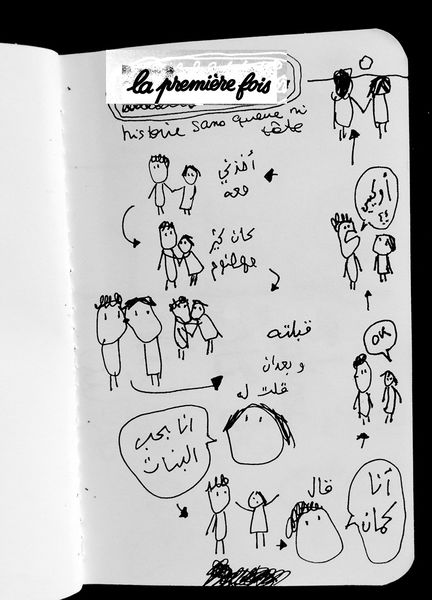 la première fois
histoire sans queue ni
tête
أخذني
معه
كان كتير
مهضوم
قبلته
و بعدان
قلت له
انا بحب
البنات
قال
أنا
كمان
OK